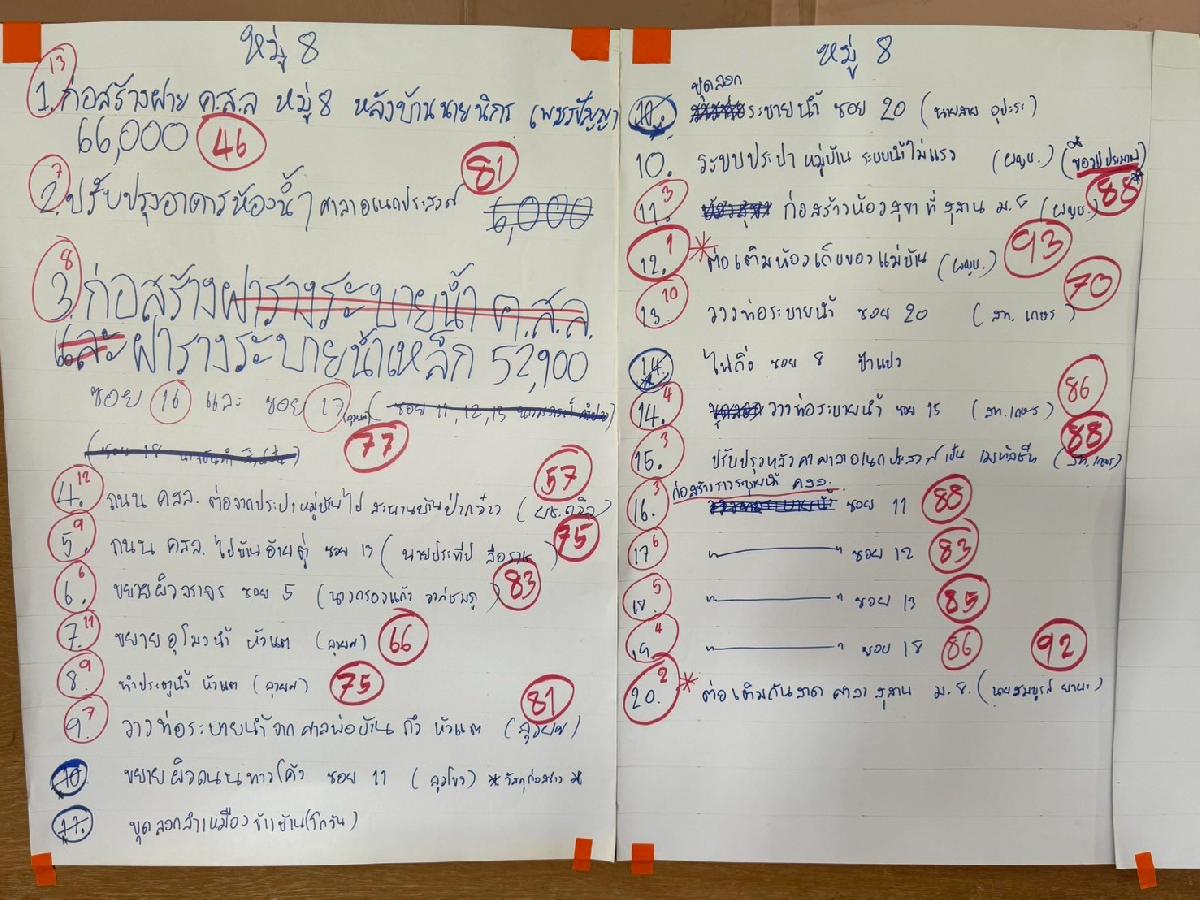 หมู่ 8
13
1. ก่อสร้างฝาย ค.ส.ล หมู่ 8 หลังบ้านนายนิกร (เพชรปัญญา)
66,000 46
7 81
2. ปรับปรุงอาคารห้องน้ำ ศาลาอเนกประสงค์ 6,000
8
3. ก่อสร้างฝารางระบายน้ำ ค.ส.ล.
และ ฝารางระบายน้ำเหล็ก 52,900
ซอย 16 และ ซอย 17 ( ซอย 11, 12, 13
ซอย 18 77
12 57
4. ถนน คสล. ต่อจากประปาหมู่บ้านไป
9 75
5. ถนน คสล. ไปบ้าน ซอย 13 (นายประทีป
6 83
6. ขยายผิวจราจร ซอย 5 (นางกรองแก้ว
11
7. ขยายอุโมงน้ำ หัวแต 66
9
8. ทำประตูน้ำ หัวแต 75
7 81
9. วางท่อระบายน้ำจากศาลพ่อบ้าน ถึง หัวแต
10 ขยายผิวถนนทางโค้ง ซอย 11
11. ขุดลอกลำเหมือง
หมู่ 8
ขุดลอก
11. ระบายน้ำ ซอย 20
10. ระบบประปา หมู่บ้าน ระบบน้ำไม่แรง (ผญบ.)
3 88
11. ก่อสร้างห้องสุขา ที่ สุสาน ม.8 (ผญบ.)
1 93
12. * ต่อเติมห้องเก็บของแม่บ้าน (ผญบ.)
10 70
13. วางท่อระบายน้ำ ซอย 20 (สท. เกษร)
14. ไฟกิ่ง ซอย 8
4 86
14. วางท่อระบายน้ำ ซอย 15 (สท. เกษร)
3 88
15. ปรับปรุงหลังคาศาลาอเนกประสงค์เป็น เมทัลชีท (สท. เกษร)
ก่อสร้างรางระบายน้ำ คสล.
3
16. วางท่อระบายน้ำ ซอย 11 88
6
17 " ——— " ซอย 12 83
5
18. " ——— " ซอย 13 85
4
19. " ——— " ซอย 18 86 92
2
20. * ต่อเติมกันสาด ศาลา สุสาน ม.8. (นายสมบูรณ์